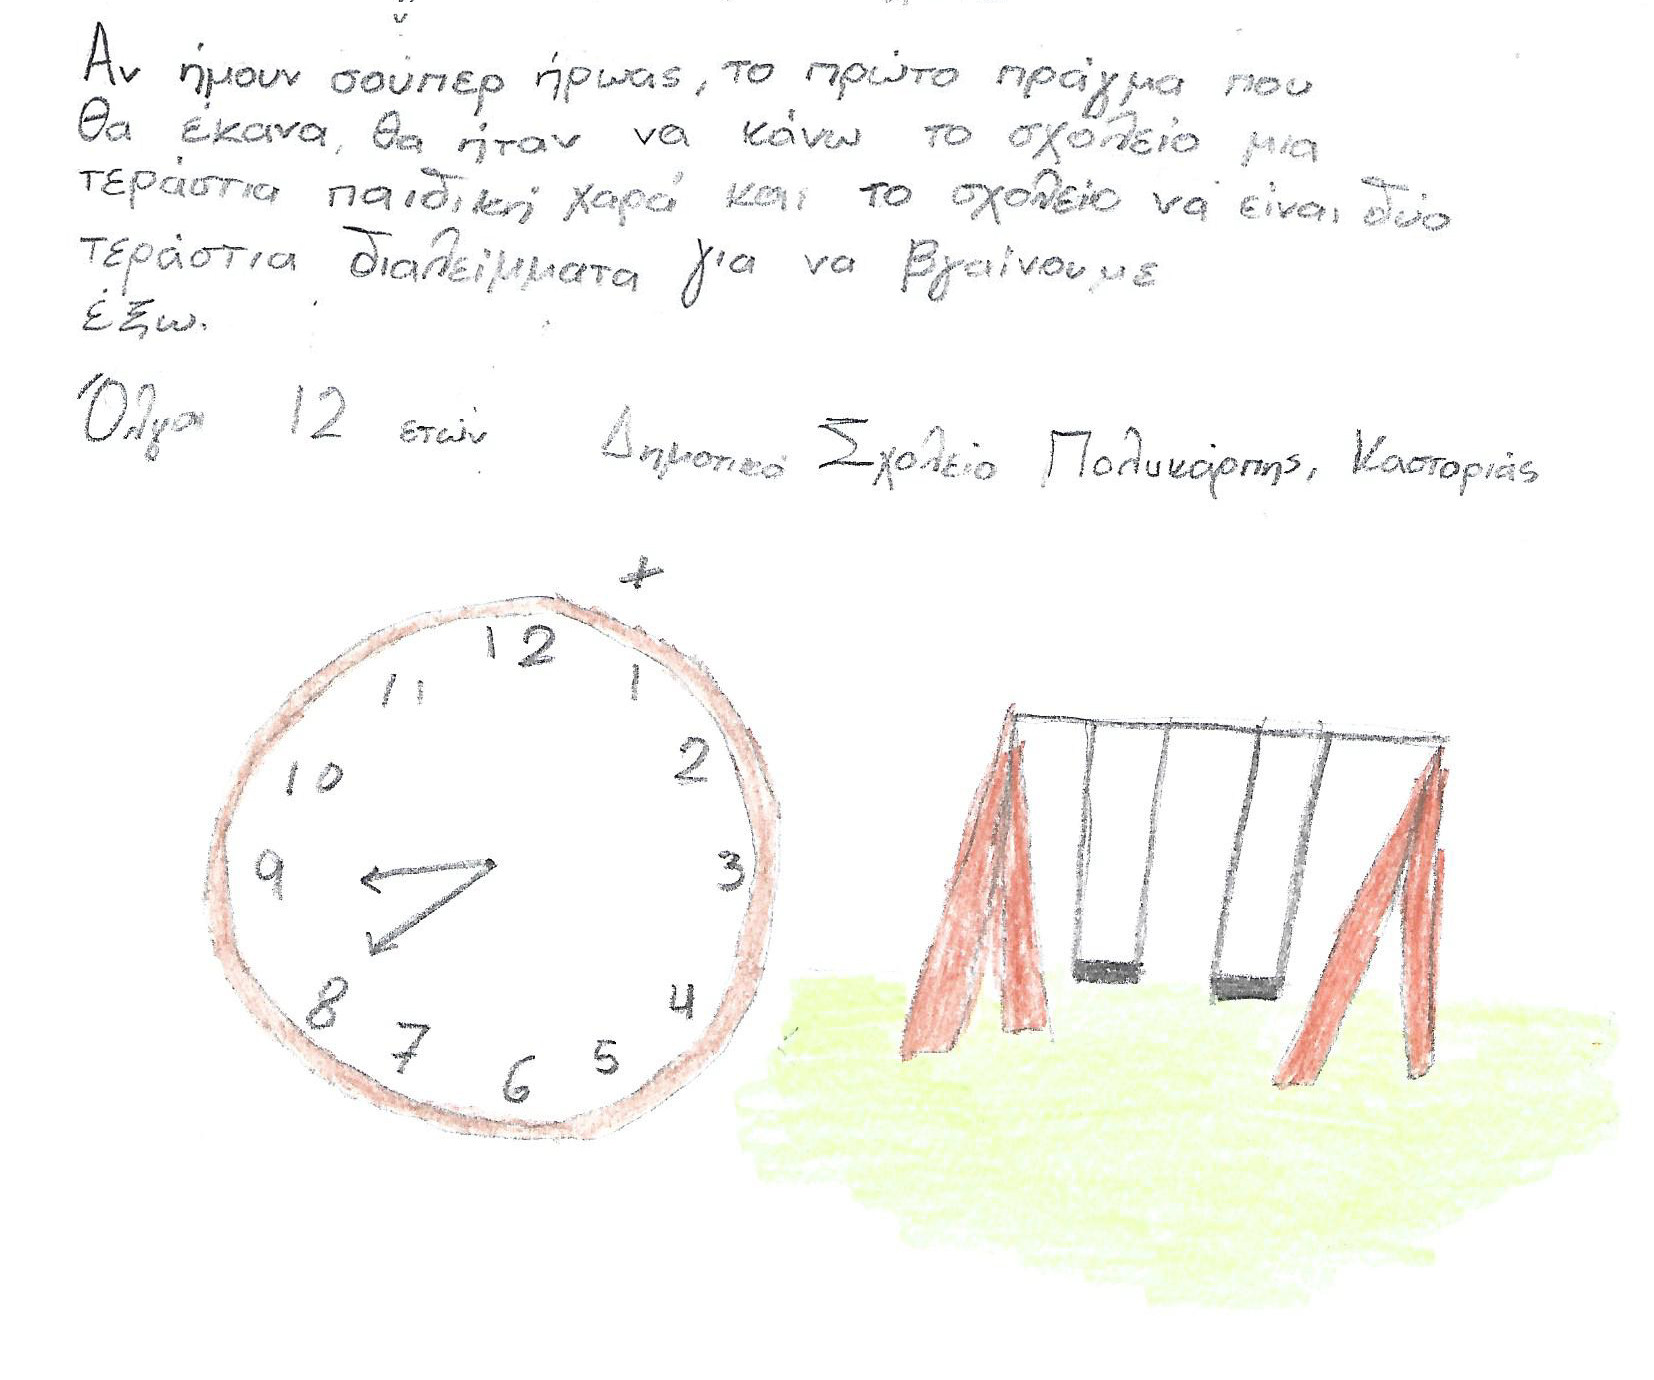 Αν ήμουν σούπερ ήρωας, το πρώτο πράγμα που
θα έκανα, θα ήταν να κάνω το σχολείο μια
τεράστια παιδική χαρά και το σχολείο να είναι δύο
τεράστια διαλείμματα για να βγαίνουμε
έξω.
Όλγα 12 ετών Δημοτικό Σχολείο Πολυκάρπης, Καστοριάς
12
11 1
10 2
9 3
8 4
7 5
6